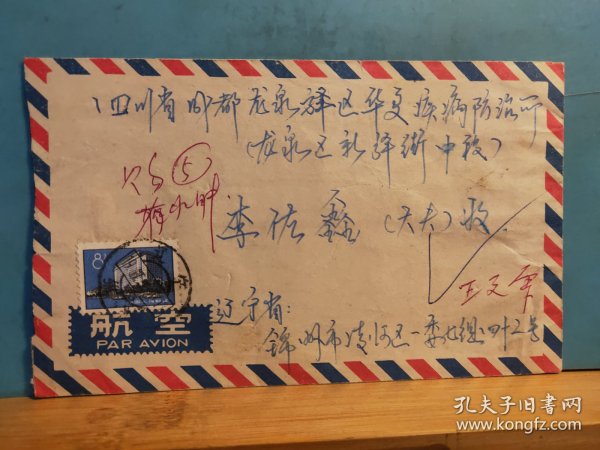 四川省成都龙泉驿区华夏疾病防治所
(龙泉区新驿街中段)
⑤
李佑鑫(大夫)收
8分
航空
PAR AVION
辽宁省:
锦州市凌河区一委七组四十二号
孔夫子旧书网
www.kongfz.com